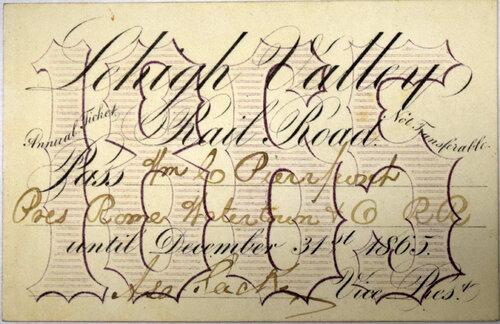 1865
Lehigh Valley
Rail Road.
Annual Ticket
Not Transferable
Pass Wm C Pierrepont
Pres Rome Watertown & O RR
until December 31st 1865.
Asa Packer Vice Pres.t